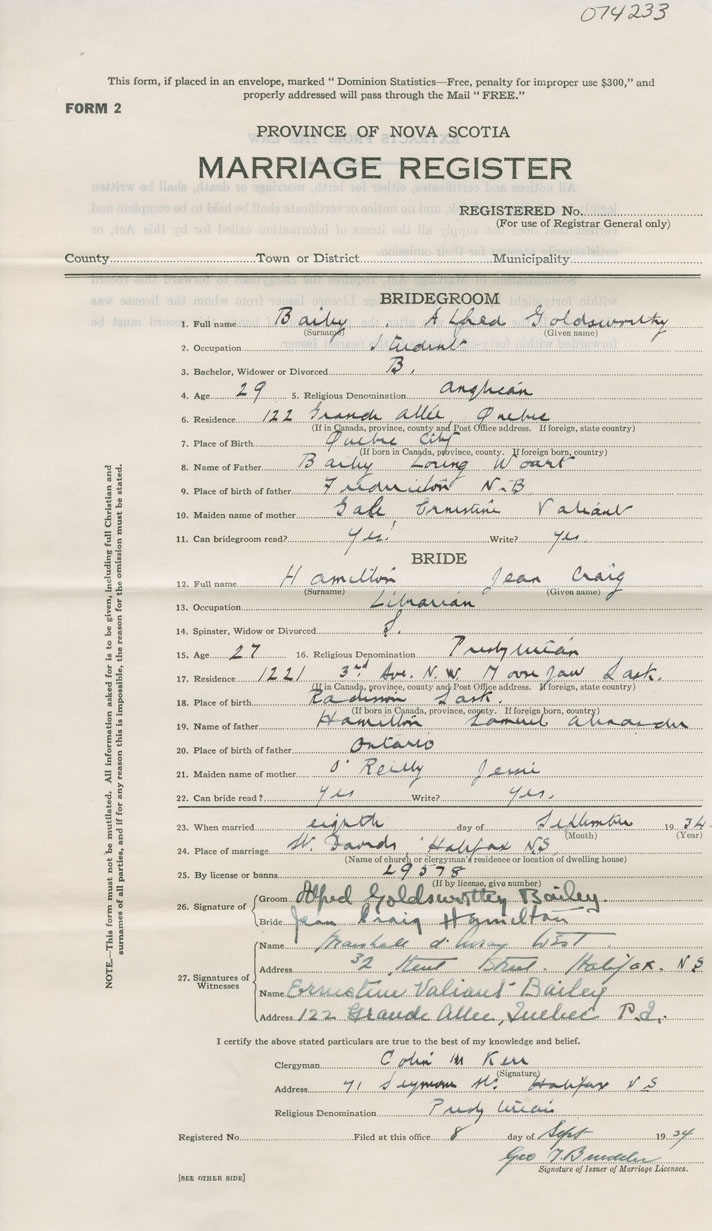 074233
This form, if placed in an envelope, marked " Dominion Statistics—Free, penalty for improper use $300," and
properly addressed will pass through the Mail " FREE."
FORM 2
PROVINCE OF NOVA SCOTIA
MARRIAGE REGISTER
REGISTERED No.
(For use of Registrar General only)
County Town or District Municipality
BRIDEGROOM
1. Full name Baily, Alfred Goldsworthy
(Surname) (Given name)
2. Occupation Student
3. Bachelor, Widower or Divorced B.
4. Age 29 5. Religious Denomination Anglican
6. Residence 122 Grande Allée Quebec
(If in Canada, province, county and Post Office address. If foreign, state country)
7. Place of Birth Quebec City
(If born in Canada, province, county. If foreign born, country)
8. Name of Father Baily Loring Woart
9. Place of birth of father Fredericton N-B
10. Maiden name of mother Gale Ernestine Valiant
11. Can bridegroom read? Yes! Write? Yes.
BRIDE
12. Full name Hamilton Jean Craig
(Surname) (Given name)
13. Occupation Librarian
14. Spinster, Widow or Divorced S.
15. Age 27 16. Religious Denomination Presbyterian
17. Residence 1221 3rd Ave. N.W. Moose Jaw Sask.
(If in Canada, province, county and Post Office address. If foreign, state country)
18. Place of birth Radisson Sask.
(If born in Canada, province, county. If foreign born, country)
19. Name of father Hamilton Samuel Alexander
20. Place of birth of father Ontario
21. Maiden name of mother O'Reilly Jessie
22. Can bride read? Yes Write? Yes.
23. When married eighth day of September 1934
(Month) (Year)
24. Place of marriage St. Davids Halifax N.S
(Name of church or clergyman's residence or location of dwelling house)
25. By license or banns 29578
(If by license, give number)
26. Signature of
Groom Alfred Goldsworthy Bailey.
Bride Jean Craig Hamilton
27. Signatures of Witnesses
Name Marshall d'Avray West
Address 32 Kent Street. Halifax. N S
Name Ernestine Valiant Bailey
Address 122 Grande Allee, Quebec P.Q.
I certify the above stated particulars are true to the best of my knowledge and belief.
Clergyman Colin M Kerr
(Signature)
Address 71 Seymour St. Halifax N S
Religious Denomination Presbyterian
Registered No. Filed at this office 8 day of Sept 1934
Geo
Signature of Issuer of Marriage Licenses.
[SEE OTHER SIDE]
NOTE.—This form must not be mutilated. All information asked for is to be given, including full Christian and
surnames of all parties, and if for any reason this is impossible, the reason for the omission must be stated.